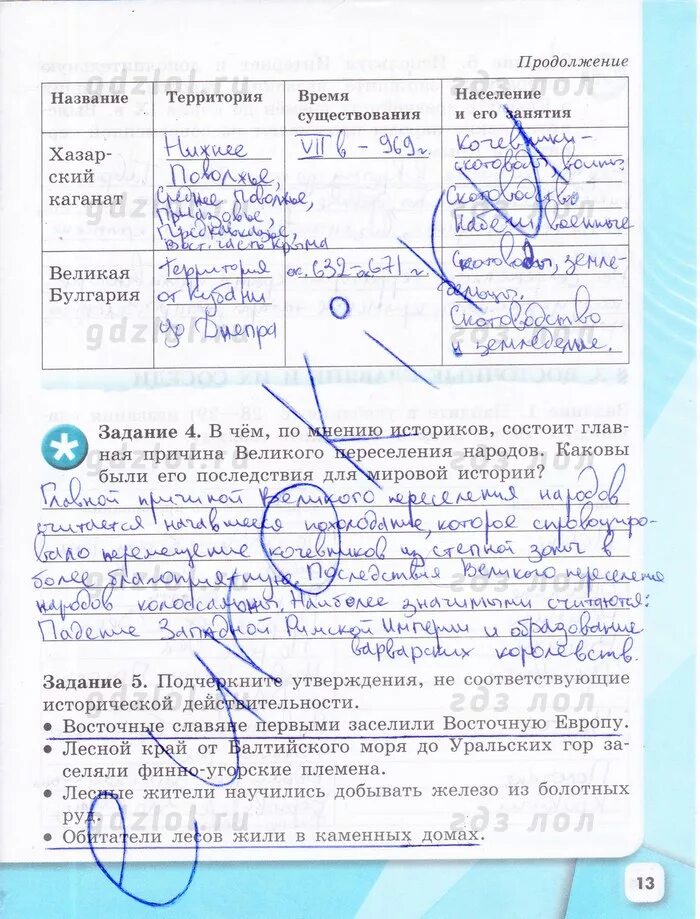 Продолжение
Название
Территория
Время существования
Население и его занятия
Хазар-
ский
каганат
Нижнее
Поволжье,
Среднее Поволжье,
Приазовье,
Предкавказье,
Вост. часть Крыма
VII в - 969 г.
Кочевники-
скотоводы, воины.
Скотоводство
Набеги военные
Великая
Булгария
Территория
от Кубани
до Днепра
ок. 632-ок. 671 г.
Скотоводы, земле-
дельцы.
Скотоводство
и земледелие.
§ 3. ВОСТОЧНЫЕ СЛАВЯНЕ И ИХ СОСЕДИ
Задание 4. В чём, по мнению историков, состоит глав-
ная причина Великого переселения народов. Каковы
были его последствия для мировой истории?
Главной причиной Великого переселения народов
считается начавшееся похолодание, которое спровоциро-
вало перемещение кочевников из степной зоны в
более благоприятную. Последствия Великого переселения
народов колоссальны. Наиболее значимыми считаются:
Падение Западной Римской Империи и образование
варварских королевств.
Задание 5. Подчеркните утверждения, не соответствующие
исторической действительности.
• Восточные славяне первыми заселили Восточную Европу.
• Лесной край от Балтийского моря до Уральских гор за-
селяли финно-угорские племена.
• Лесные жители научились добывать железо из болотных
руд.
• Обитатели лесов жили в каменных домах.
13
gdzlol.ru
гдз лол